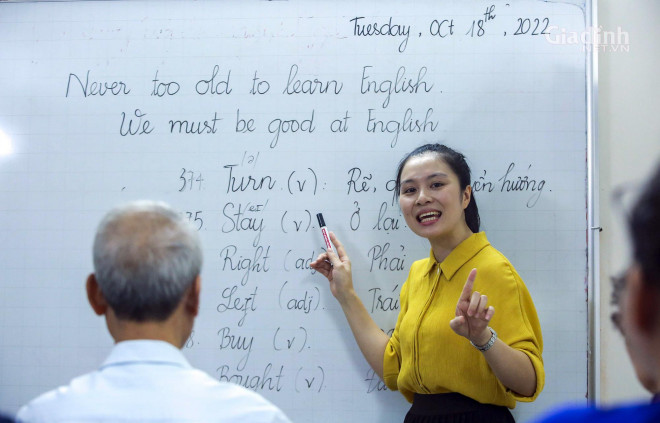 Tuesday, Oct 18th, 2022
Giadinh
NET.VN
Never too old to learn English.
We must be good at English
374. Turn (v): Rẽ, hướng.
Stay (v). ở lại
Right (adj) Phải
Left (adj).
Buy (v).
Bought (v)